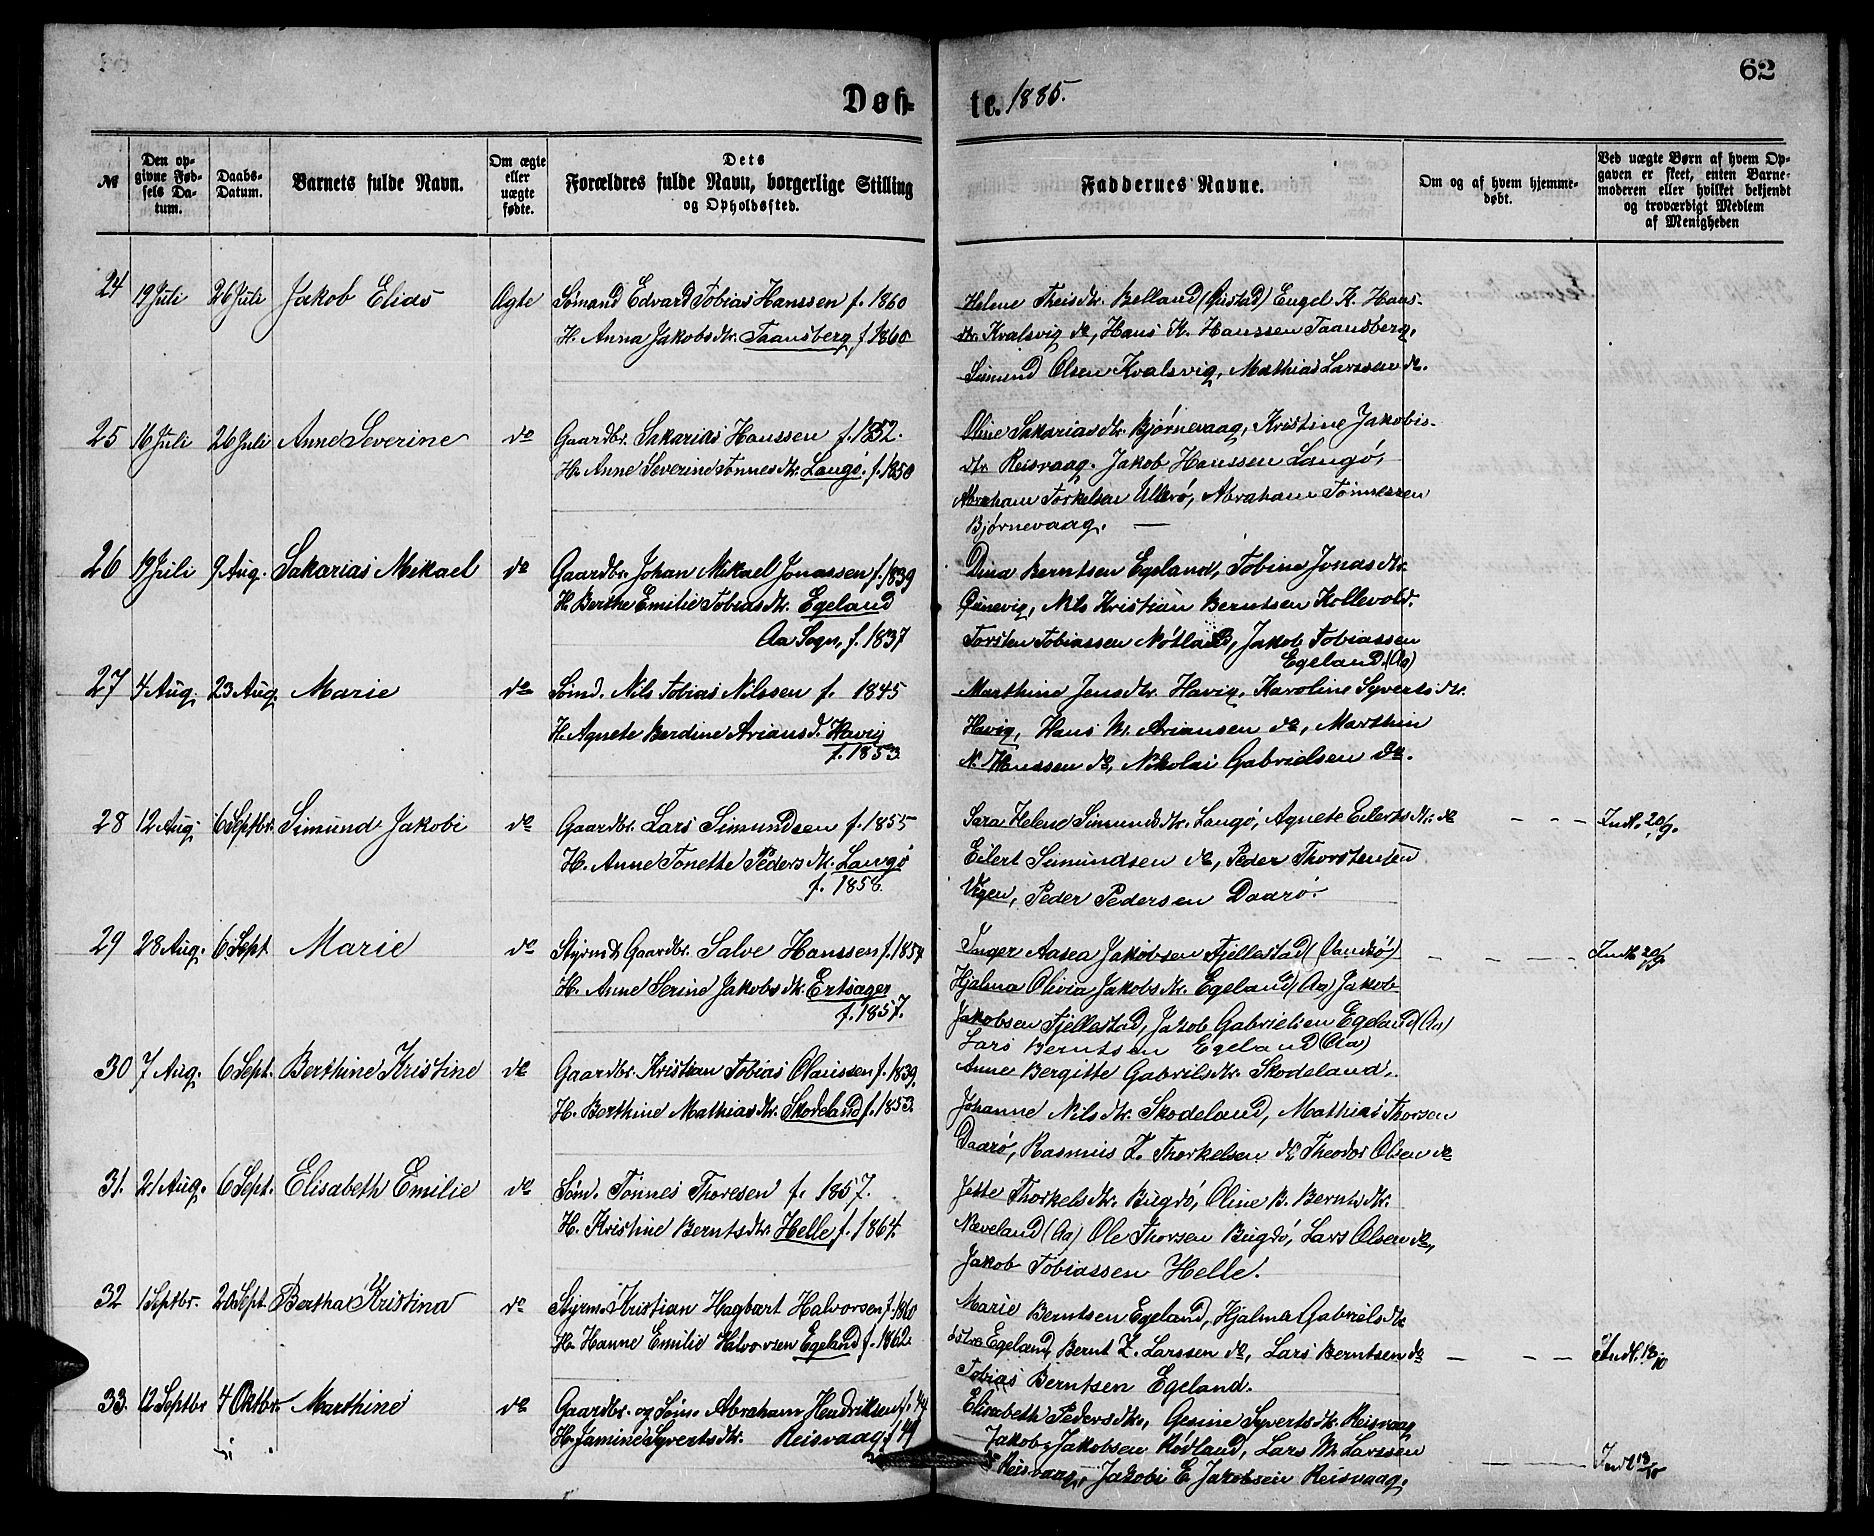 62
Døbte. 1885.
№
Den opgivne Fødsels Datum.
Daabs-Datum.
Barnets fulde Navn.
Om ægte eller uægte fødte.
Dets
Forældres fulde Navn, borgerlige Stilling
og Opholdssted.
Faddernes Navne.
Om og af hvem hjemmedøbt.
Ved uægte Børn af hvem Opgaven er skeet, enten Barnemoderen eller hvilket bekjendt og troværdigt Medlem af Menigheden
24 19 Juli 26 Juli Jakob Elias Ægte Sømand Edvard Tobias Hanssen f. 1860
H. Anna Jakobsdtr. Taansberg f 1860
Helene Theisdtr. Belland (Øistad) Engel K. Hans-
dtr. Kvalsvig do, Hans K. Hanssen Taandberg,
Simund Olsen Kvalsvig, Mathias Larssen do.
25 16 Juli 26 Juli Anne Severine do Gaardbr. Sakarias Hanssen f. 1852.
H. Anne Severine Tønnesdtr. Langø. f. 1850
Oline Sakariasdtr. Bjørnevaag, Kristine Jakobs-
dtr. Reisvaag. Jakob Hanssen Langø,
Abraham Torkelsen Ullerø, Abraham Tønnessen
Bjørnevaag. —
26 19 Juli 9 Aug. Sakarias Mikael do Gaardbr. Johan Mikael Jonassen f. 1839
H. Berthe Emilie Tobiasdtr. Egeland
Aa Sogn, f. 1837
Dina Berntsen Egeland, Tobine Jonasdtr.
Nils Kristian Berntsen Kollevold.
Torsten Tobiassen Nøtland, Jakob Tobiassen
Egeland. (Aa)
27 4 Aug. 23 Aug. Marie do Sømd. Nils Tobias Nilssen f. 1845
H. Agnete Berdine Ariansd. Havig
f. 1853.
Marthine Jensdtr. Havig, Karoline Syvertsdtr.
Havig, Hans M. Ariansen do, Marthin
N. Hanssen do, Nikolai Gabrielsen do.
28 12 Aug. 6 Septbr. Simund Jakobi do Gaardbr. Lars Simundsen f. 1855
H. Anne Tonette Pedersdtr. Langø
f. 1858.
Sara Helene Simundsdtr. Langø, Agnete Eilertsdtr. do — — — Indl. 20/9.
Eilert Simundsen do, Peder Thorstensen
Vigen, Peder Pedersen Daarø.
29 28 Aug. 6 Sept. Marie do Styrmd. Gaardbr. Salve Hanssen f. 1854
H. Anne Serine Jakobsdtr. Ertsager
f. 1857.
Inger Aasea Jakobsen Fjellestad (Vandsø) — — — Indl 20/9
Hjalma Olivia Jakobsdtr. Egeland (Aa) Jakob
Jakobsen Fjellestad, Jakob Gabrielsen Egeland (Aa)
Lars Berntsen Egeland (Aa)
30 7 Aug. 6 Sept. Berthine Kristine do Gaardbr. Kristian Tobias Olaussen f. 1839.
H. Berthine Mathiasdtr. Skodeland f. 1853.
Anne Bergitte Gabrielsdtr. Skodeland,
Johanne Nilsdtr. Skodeland, Mathias Thorsen
Daarø, Rasmus Z. Thorkelsen do Theodor Olsen do
31. 21 Aug. 6 Sept. Elisabeth Emilie do Sømd. Tønnes Thoresen f. 1857.
H. Kristine Berntsdtr. Helle f. 1864.
Jette Thorkelsdtr. Bugdø, Oline B. Berntsdtr.
Næveland (Aa) Ole Thorsen Bugdø, Lars Olsen do,
Jakob Tobiassen Helle.
32 1 Septbr. 20 Sept. Bertha Kristina do Styrmd. Kristian Hagbart Halvorsen f. 1860
H. Hanne Emilie Halvorsen Egeland f. 1862.
Marie Berntsen Egeland, Hjalma Gabrielsdtr.
Egeland, Bernt Z. Larssen do, Lars Berntsen do — — — Indl. 18/10
Tobias Berntsen Egeland.
33. 12 Septbr 4 Oktbr. Marthine do Gaardbr. og Søm. Abraham Hendriksen f. 44
H. Jamine Syvertsdtr. Reisvaag f 49
Elisabeth Pedersdtr., Gesine Syvertsdtr. Reisvaag
Jakob Jakobsen Rødland, Lars M. Larssen
Reisvaag, Jakobi E Jakobsen Reisvaag. — — — Indl 18/10